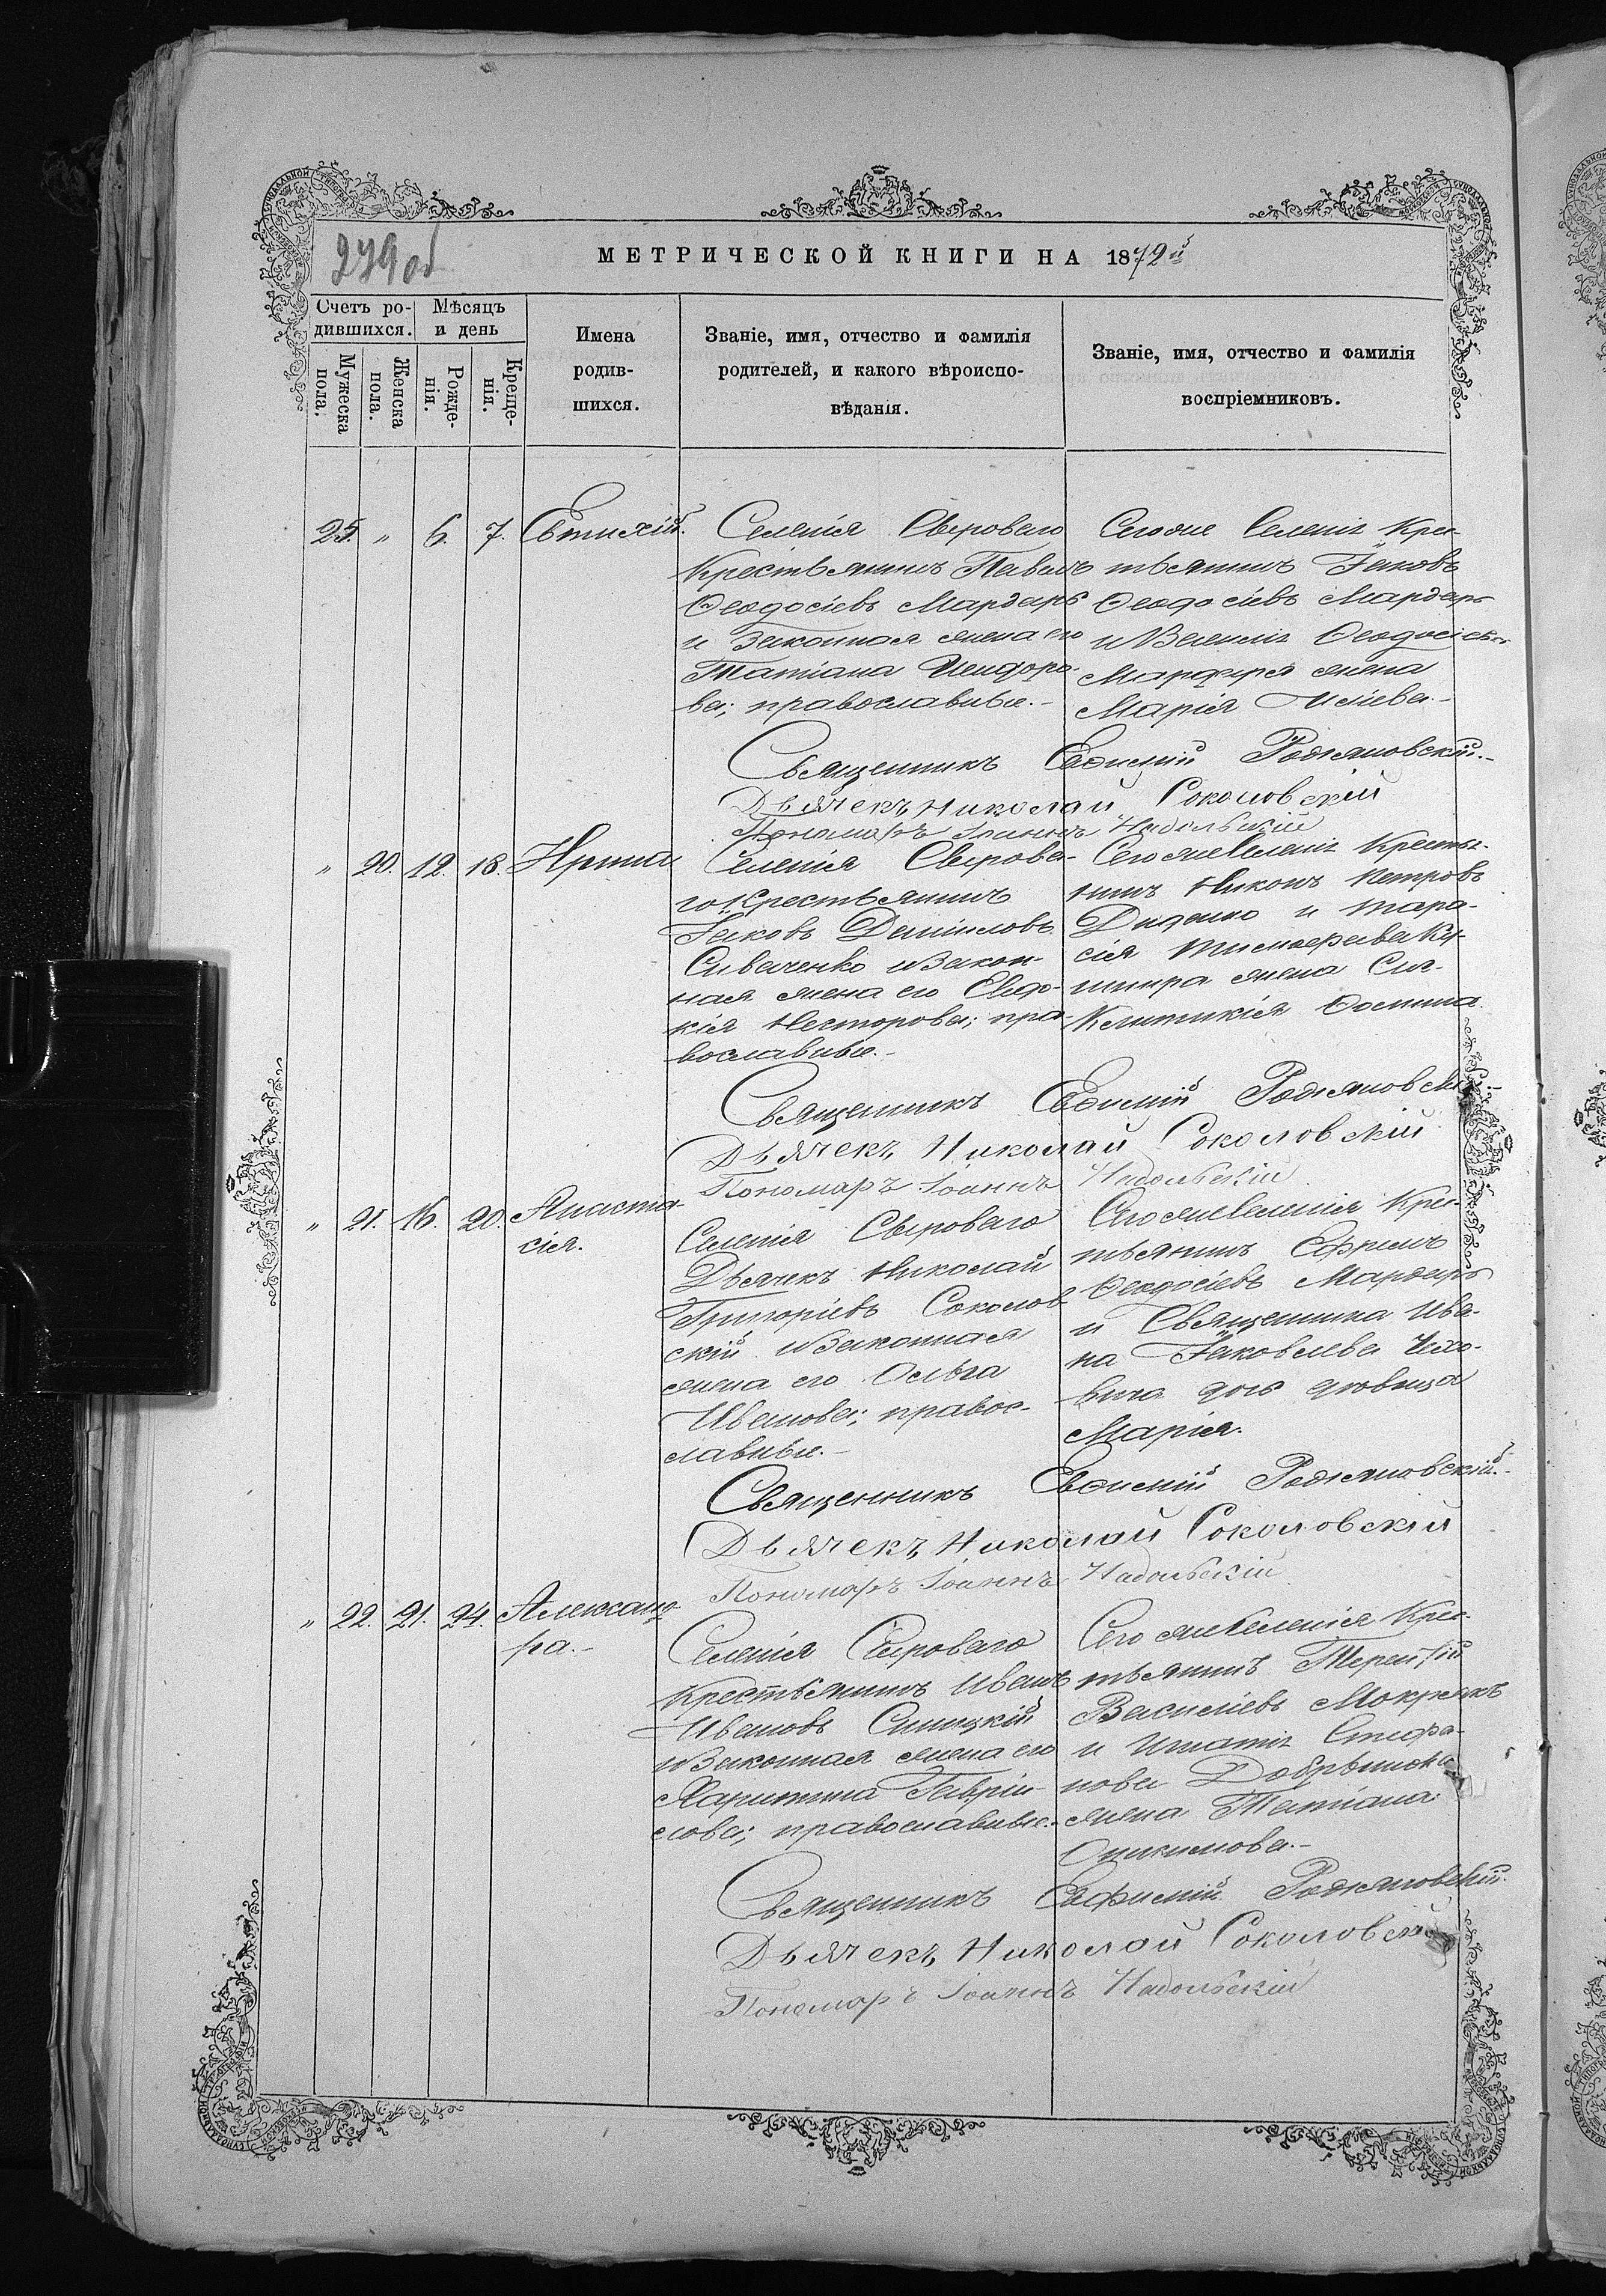 279об
МЕТРИЧЕСКОЙ КНИГИ НА 1872й
Счетъ ро-
дившихся.
Мѣсяцъ
и день
Мужеска
пола.
Женска
пола.
Рожде-
нія.
Креще-
нія.
Имена
родив-
шихся.
Званіе, имя, отчество и фамилія
родителей, и какого вѣроиспо-
вѣданія.
Званіе, имя, отчество и фамилія
воспріемниковъ.
25. " 6. 7. Евтихій.
Селенія Сыроваго
Крестьянинъ Павелъ
Ѳеодосіевъ Мардарь
и законная жена его
Татіана Исидоро-
ва; православные.-
Сегоже Селенія Крес-
тьянинъ Іаковъ
Ѳеодосіевъ Мардарь
и Василія Ѳеодосіева
Мардаря жена
Марія
Священникъ Евѳимій Родзяновскій.-
Дьячекъ Николай Соколовскій
Пономаръ Іоаннъ Надольскій
" 20. 12. 18. Ирина
Селенія Сырова-
го Крестьянинъ
Іаковъ Даніиловъ
Сиваченко и закон-
ная жена его Евдо-
кія Несторова; пра-
вославные.-
Сегоже Селенія Крестья-
нинъ Никонъ Петровъ
Диденко и
сія
жена
Ѳомина
Священникъ Евѳимій Родзяновскій.-
Дьячекъ Николай Соколовскій
Пономаръ Іоаннъ Надольскій
" 21. 16. 20. Анаста-
сія.
Селенія Сыроваго
Дьячекъ Николай
Григоріевъ Соколов-
скій и законная
жена его Ольга
Иванова; правос-
лавные.-
Сегоже Селенія Крес-
тьянинъ Ефремъ
Ѳеодосіевъ Мардарь
и Священника Ива-
на Іаковлева
дочь дѣвица
Марія.
Священникъ Евѳимій Родзяновскій.-
Дьячекъ Николай Соколовскій
Пономаръ Іоаннъ Надольскій
" 22. 21. 24. Александ-
ра.-
Селенія Сыроваго
Крестьянинъ Иванъ
Ивановъ Синицкій
и законная жена его
Харитина Гавріи-
лова; православные.-
Сегоже Селенія Крес-
тьянинъ Терентій
Василіевъ Мокрякъ
и Игнатія Стефа-
нова
жена Татіана
Священникъ Евфимій Родзяновскій.
Дьячекъ Николай Соколовскій
Пономаръ Іоаннъ Надольскій